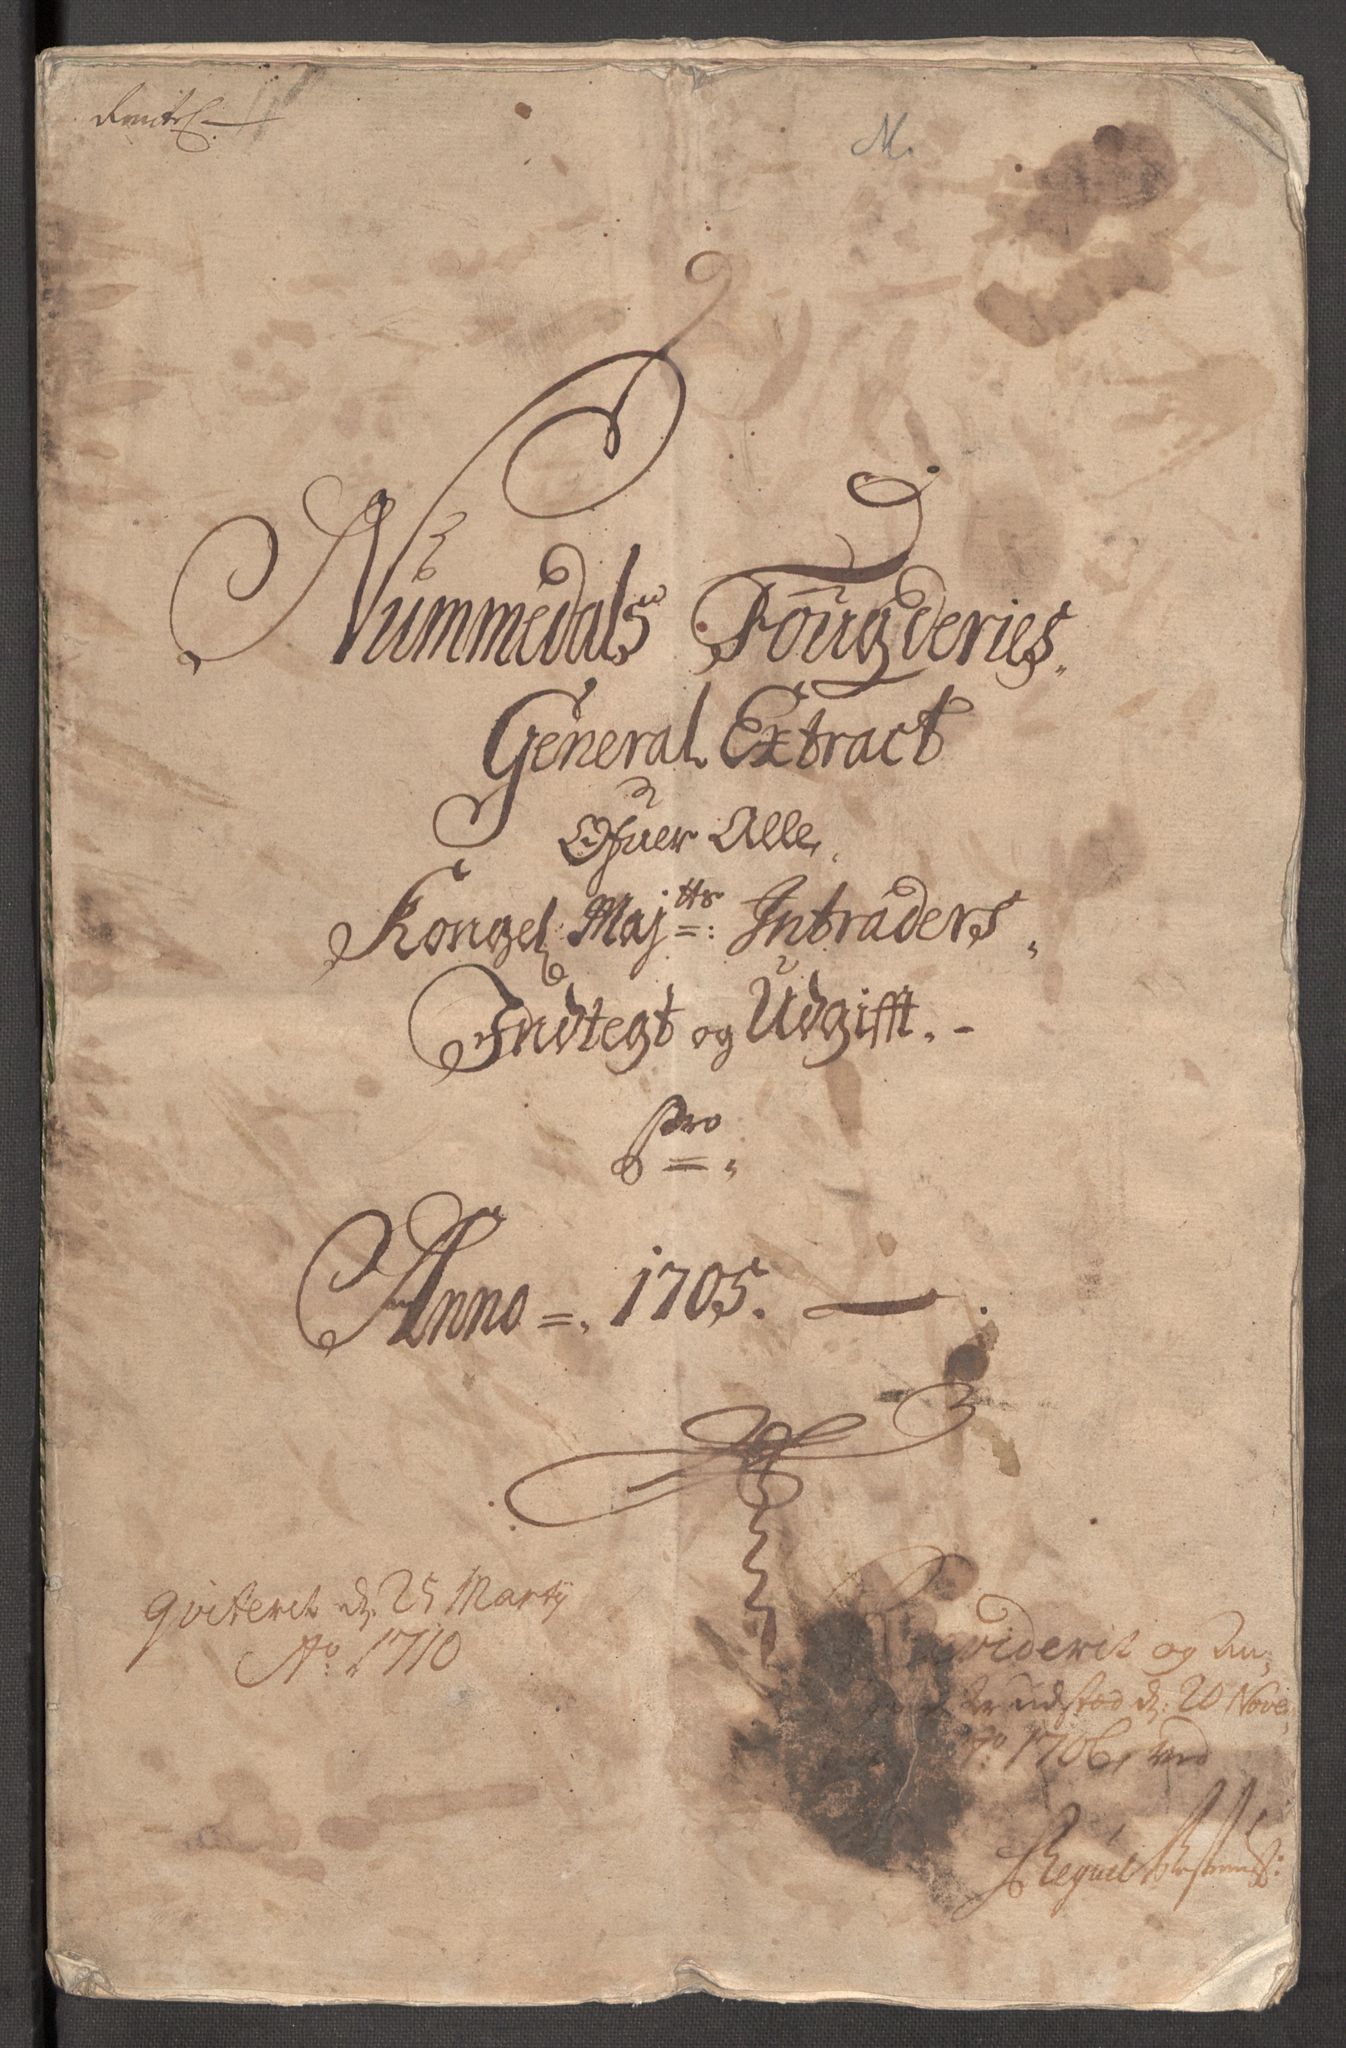 M.
Nummedals Fougderies.
General Extract
Ofuer Alle,
Kongel Majtts: Intraders,
Indtegt og Udgifft. -
Pro
Anno =. 1705. —
qviterit d. 25 Martÿ
Ao. 1710
Reviderit og An,
udstæd d: 20 Nove,
Ao: 1706, ved